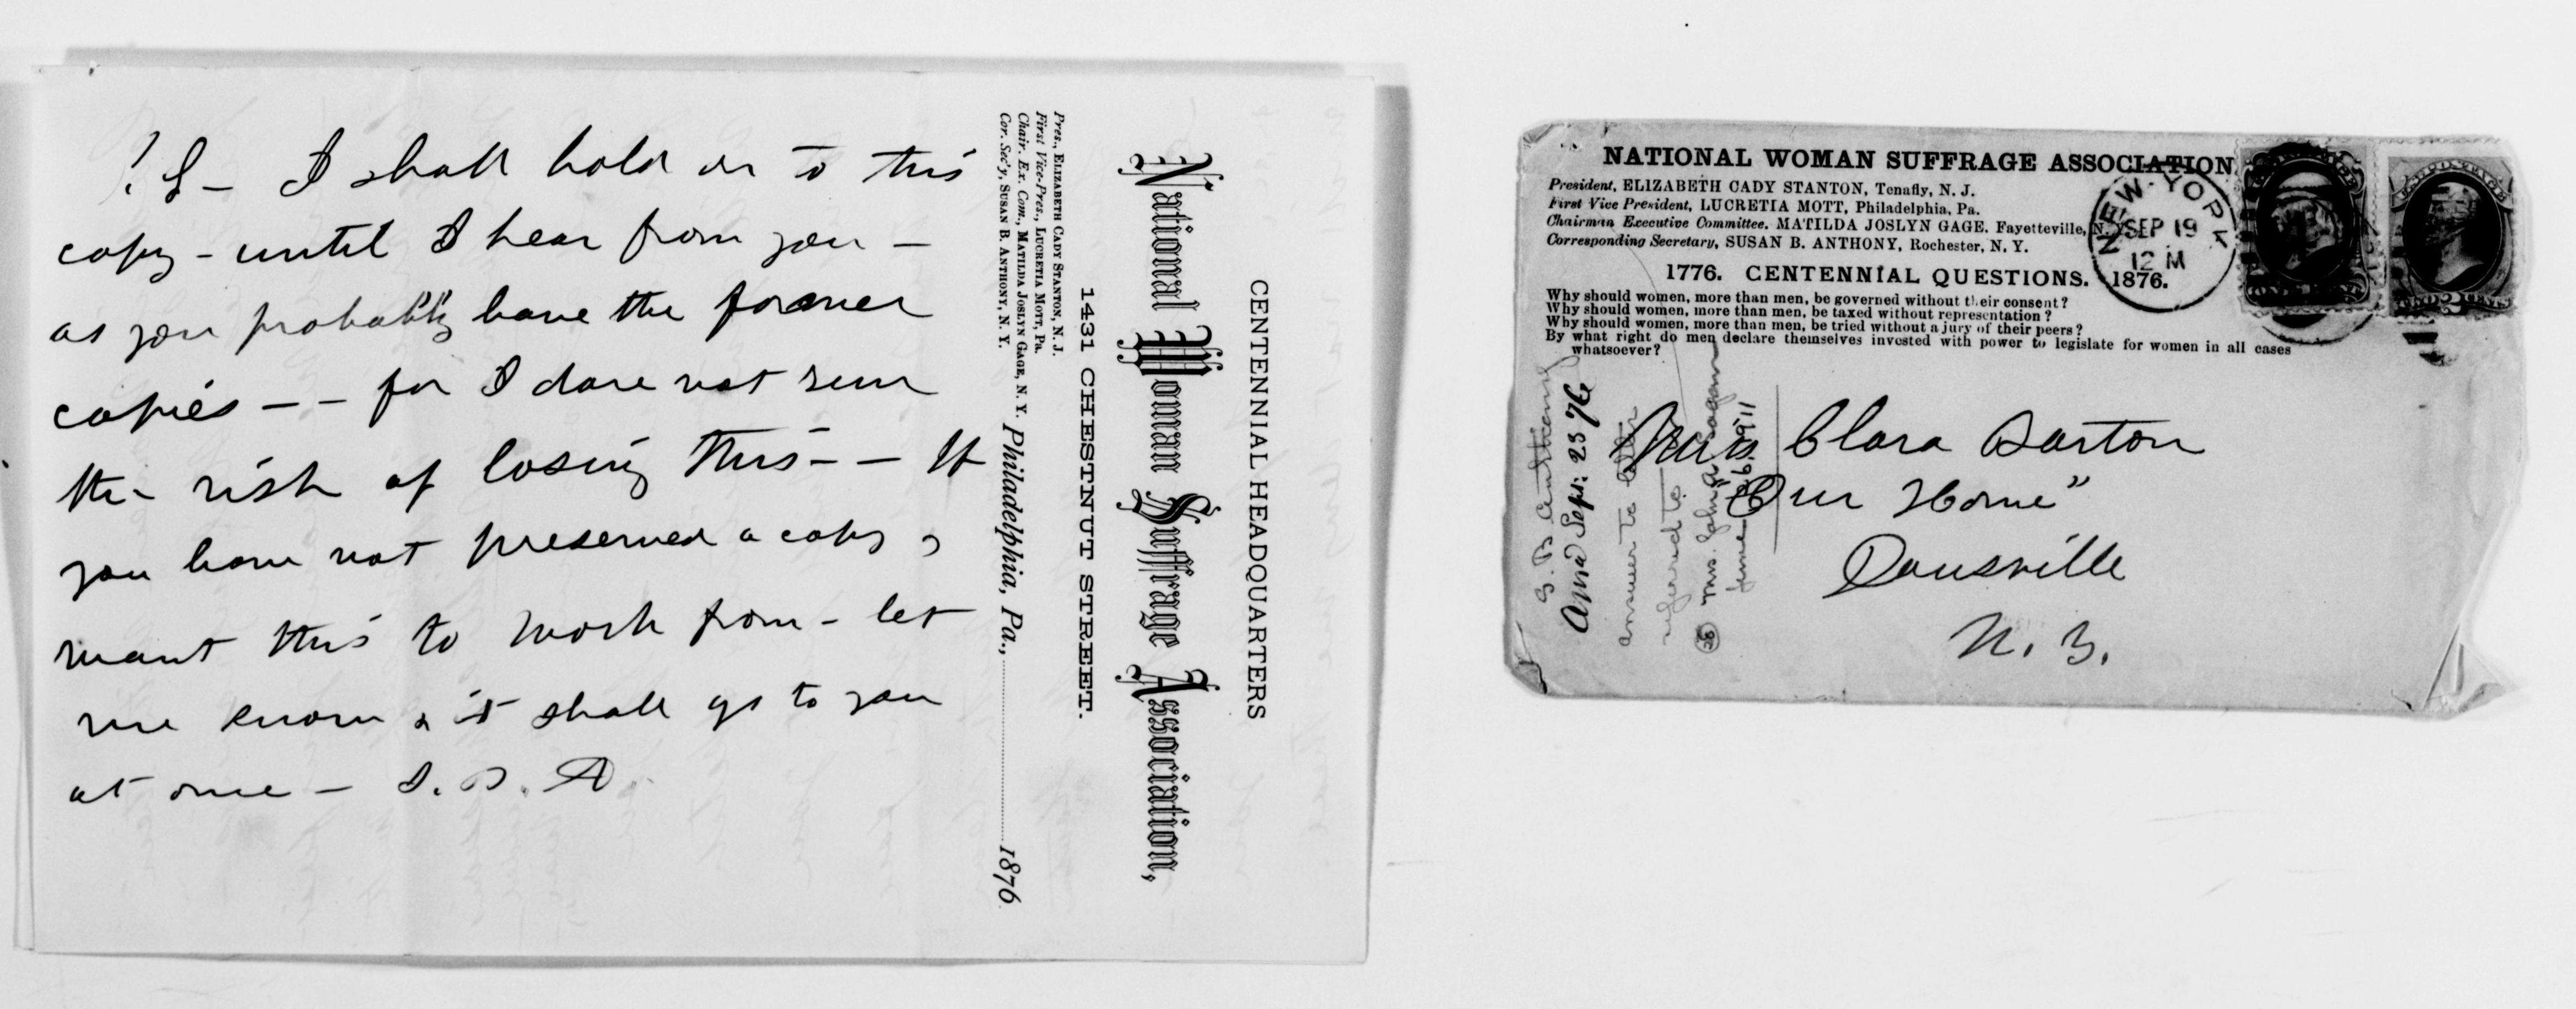 P.S - I shall hold on to this
copy - until I hear from you -
as you probably have the former
copies - - for I dare not run
the risk of losing this - - If
you have not preserved a copy,
want this to work from - let
me know & it shall go to you
at once - S. B. A.
CENTENNIAL HEADQUARTERS
National Woman Suffrage Association,
1431 CHESTNUT STREET.
Pres., ELIZABETH CADY STANTON, N. J.
First Vice-Pres., LUCRETIA MOTT, Pa.
Chair. Ex. Com., MATILDA JOSLYN GAGE, N. Y.
Cor. Sec'y, SUSAN B. ANTHONY, N. Y.
Philadelphia, Pa., 1876
NATIONAL WOMAN SUFFRAGE ASSOCIATION
President, ELIZABETH CADY STANTON, Tenafly, N. J.
First Vice President, LUCRETIA MOTT, Philadelphia, Pa.
Chairman Executive Committee. MATILDA JOSLYN GAGE. Fayetteville, N. Y.
Corresponding Secretary, SUSAN B. ANTHONY, Rochester, N. Y.
1776. CENTENNIAL QUESTIONS. 1876.
Why should women, more than men, be governed without their consent?
Why should women, more than men, be taxed without representation?
Why should women, more than men, be tried without a jury of their peers?
By what right do men declare themselves invested with power to legislate for women in all cases
whatsoever?
NEW-YORK
SEP 19
12 M
Miss Clara Barton
"Our Home"
Dansville
N. Y.
S. B Anthony
Ansd Sept. 23 76
answer to letter
referred to
Mrs. John Logan
June 1911